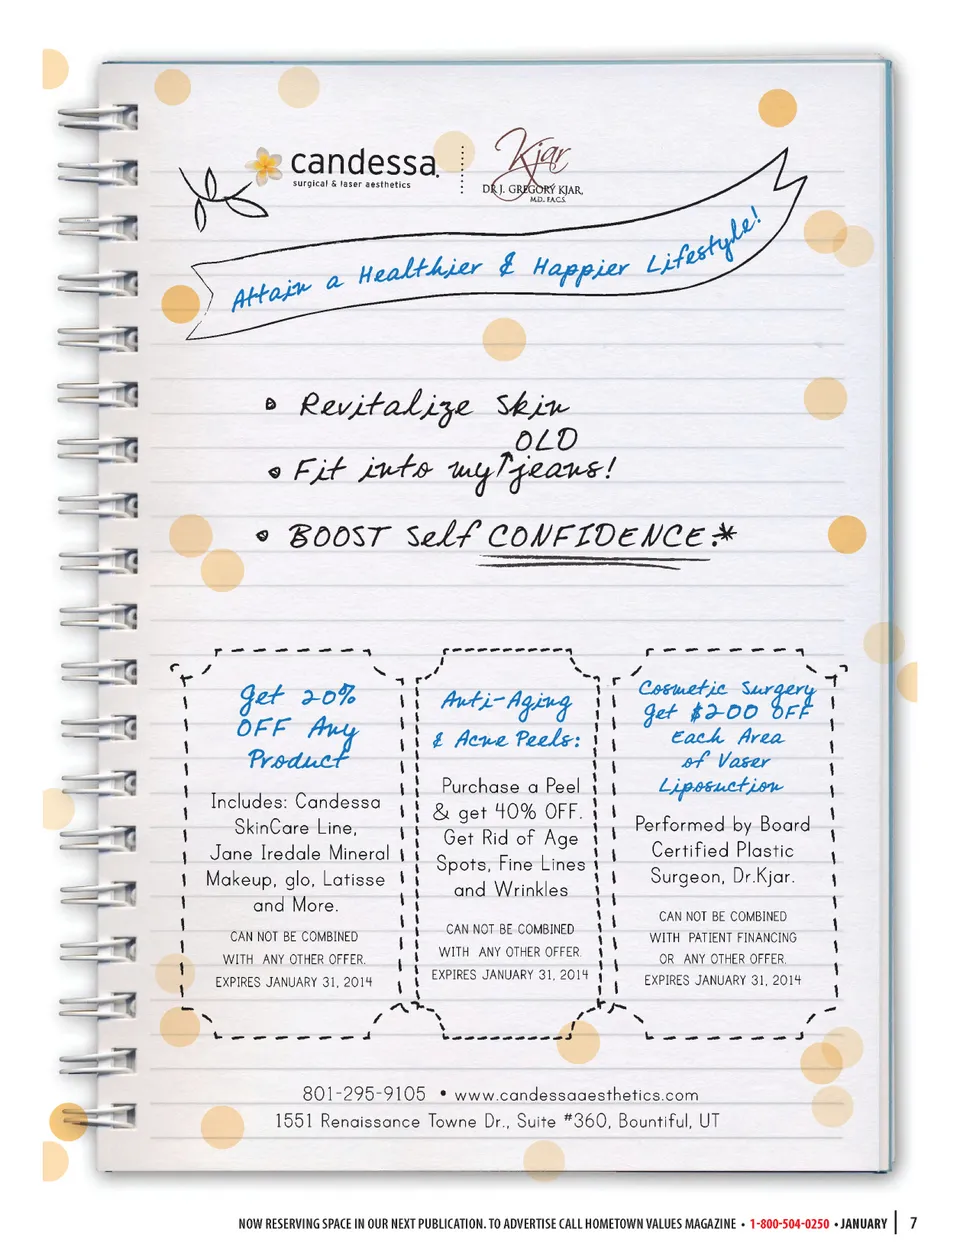 candessa
surgical & laser aesthetics
Kjar
DR J. GREGORY KJAR,
M.D. F.A.C.S.
Attain a Healthier & Happier Lifestyle!
• Revitalize Skin
OLD
• Fit into my jeans!
• BOOST Self CONFIDENCE.*
Get 20%
OFF Any
Product
Includes: Candessa
SkinCare Line,
Jane Iredale Mineral
Makeup, glo, Latisse
and More.
CAN NOT BE COMBINED
WITH ANY OTHER OFFER.
EXPIRES JANUARY 31, 2014
Anti-Aging
& Acne Peels:
Purchase a Peel
& get 40% OFF.
Get Rid of Age
Spots, Fine Lines
and Wrinkles
CAN NOT BE COMBINED
WITH ANY OTHER OFFER.
EXPIRES JANUARY 31, 2014
Cosmetic Surgery
Get $200 OFF
Each Area
of Vaser
Liposuction
Performed by Board
Certified Plastic
Surgeon, Dr.Kjar.
CAN NOT BE COMBINED
WITH PATIENT FINANCING
OR ANY OTHER OFFER.
EXPIRES JANUARY 31, 2014
801-295-9105 • www.candessaaesthetics.com
1551 Renaissance Towne Dr., Suite #360, Bountiful, UT
NOW RESERVING SPACE IN OUR NEXT PUBLICATION. TO ADVERTISE CALL HOMETOWN VALUES MAGAZINE • 1-800-504-0250 • JANUARY | 7